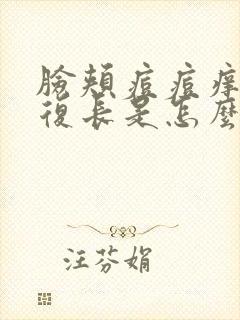 臉頰痘痘痒
復長是怎麼
汪芬娟